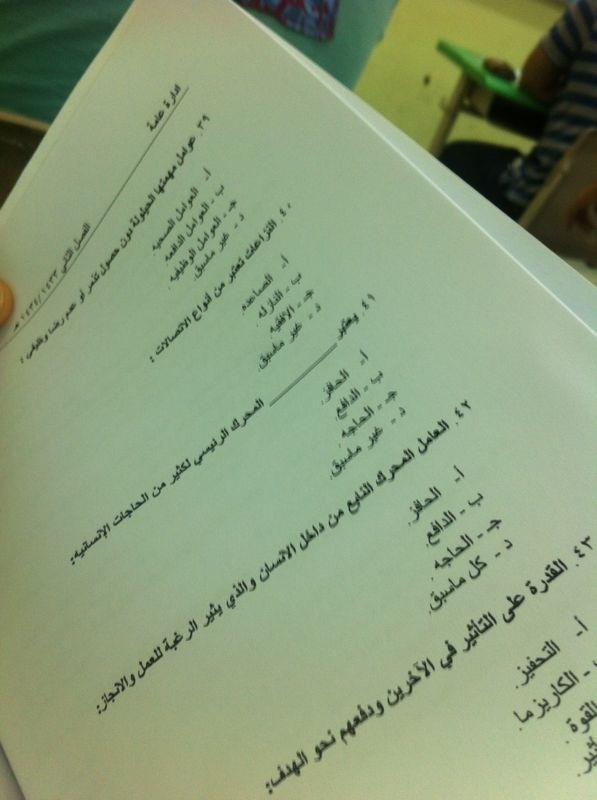 ادارة عامة
الفصل الثاني ١٤٣٤/١٤٣٣ هـ
٣٩. عوامل مهمتها الحيلولة دون حصول تذمر او عدم رضا وظيفي :
أ- العوامل الصحيه
ب - العوامل الدافعه
جـ - العوامل الوظيفيه
د - غير ماسبق.
٤٠. النزاعات تعتبر من أنواع الاتصالات :
أ- الصاعده
ب - النازله
جـ - الأفقيه
د - غير ماسبق.
٤١. ويعتبر ________ المحرك الرئيسي لكثير من الحاجات الإنسانيه:
أ- الحافز.
ب - الدافع.
جـ - الحاجه.
د - غير ماسبق.
٤٢. العامل المحرك النابع من داخل الانسان والذي يثير الرغبة للعمل والانجاز:
أ- الحافز.
ب - الدافع.
جـ - الحاجه.
د - كل ماسبق.
٤٣. القدرة على التأثير في الآخرين ودفعهم نحو الهدف:
أ- التحفيز.
- الكاريزما.
القوة.